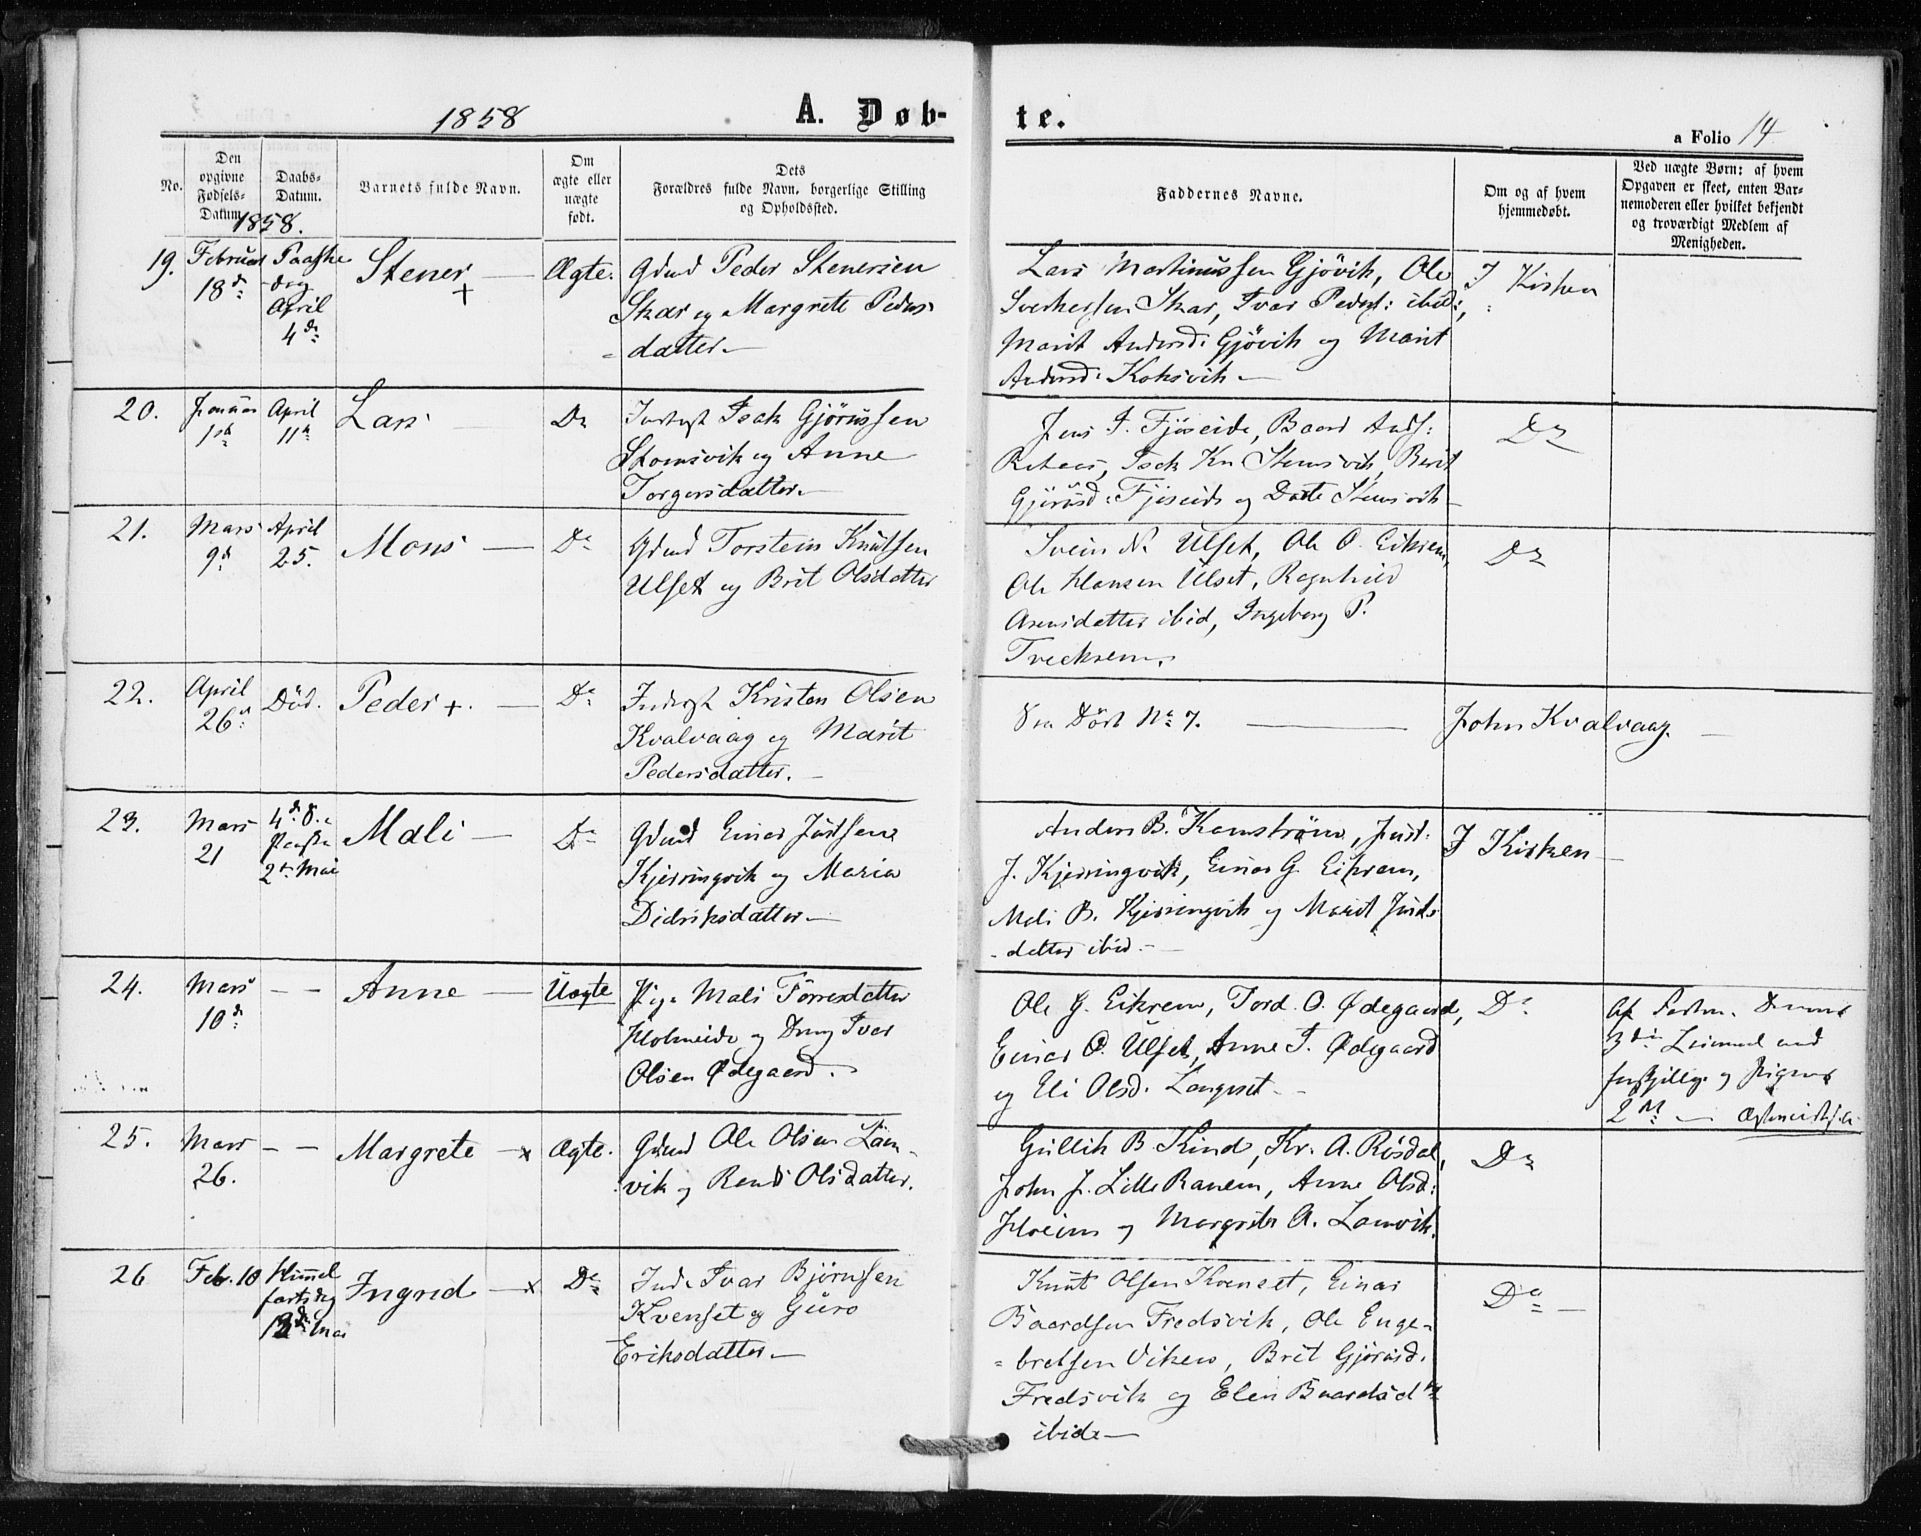 1858 A. Døb-
te.
a Folio 14
No.
Den opgivne Fødsels-Datum.
Daabs-Datum.
Barnets fulde Navn.
Om ægte eller uægte født.
Dets Forældres fulde Navn, borgerlige Stilling og Opholdssted.
Faddernes Navne.
Om og af hvem hjemmedøbt.
Ved uægte Børn: af hvem Opgaven er skeet, enten Barnemoderen eller hvilket bekjendt og troværdigt Medlem af Menigheden.
1858.
19.
Februar
18d
Paaske
-dag
April
4de
Stener +
Ægte.
Gdmd Peder Stenersen
Skar og Margrete Peders-
datter
Lars Martinussen Gjövik, Ole
Sverkessen Skar, Ivar Peders: ibid:,
Marit Andersd: Gjövik og Marit
Andersd: Koksvik
I Kirken
20.
Januar
1st
April
11te
Lars
Do
Isak Gjørussen
Stomsvik og Anne
Torgersdatter
Jens I. Fjöseide, Baard Ands:
Isak Kn Stomsvik, Berit
Gjörusd: Fjøseide og Dorte Stomsvik
Do
21.
Mars
9d
April
25.
Mons
Do
Gdmd Torstein Knutsen
Ulset og Brit Olsdatter
Svein N. Ulset, Ole O. Eikrem,
Ole Hansen Ulset, Ragnhild
Arensdatter ibid, Ingeborg P.
Tveekrem.
Do
22.
April
26d
Död.
Peder +.
Do
Inderst Kristen Olsen
Kvalvaag og Marit
Pedersdatter.
Död No 7.
John Kvalvaag.
23.
Mars
21
4de S. e.
Paaske
2den Mai
Mali
Do
Gdmd Einar Justsen
Kjerringvik og Maria
Didriksdatter
Anders B. Kamström, Just.
J. Kjerringvik, Einar G. Eikrem,
Mali B. Kjerringvik og Marit Justs
-datter ibid.
I Kirken
24.
Mars
10de
- -
Anne
Uægte
Pige Mali Torresdatter
Holmeide og Ung Ivar
Olsen Ødegaard.
Ole G. Eikrem, Tord. O. Ødegaard,
Einar O. Ulset, Anne T. Ødegaard
og Eli Olsd. Langset
Do
Af
3die Leiermaal med
forskjellige og Pigens
2det
25.
Mars
26.
- -
Margrete x
Ægte.
Gdmd Ole Olsen Lam-
vik og Randi Olsdatter.
Gullik B. Kind, Kr. A. Rösdal,
John J. Lille Ranem, Anne Olsd:
Hoeim og Margrete A. Lamvik.
Do
26
Feb. 10
Himmel
fartsdag
13de Mai
Ingrid x
Do
Ind. Ivar Bjørnsen
Kvenset og Guro
Eriksdatter
Knut Olsen Kvenset, Einar
Baardsen Fredsvik, Ole Enge-
-bretsen Viken, Brit Gjörusd.
Fredsvik og Elen Baardsdtr
ibid
Do